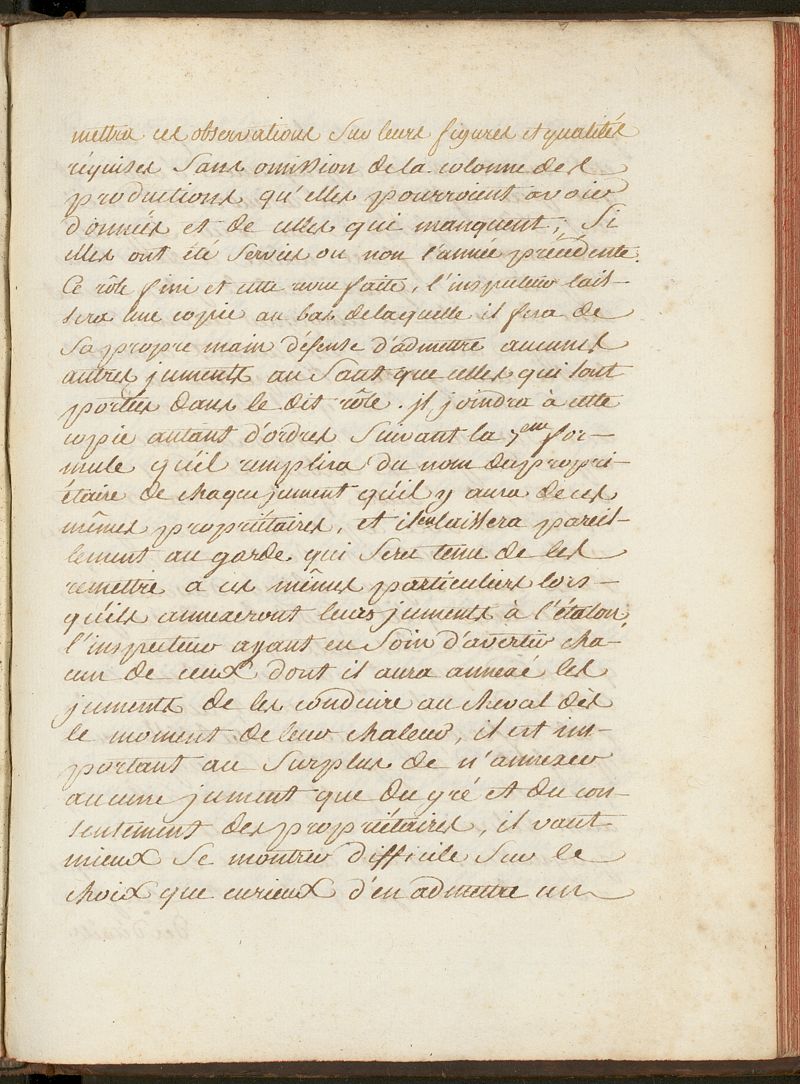 mettra ces observations sur leurs figures et qualités
réquises sans omission de la colonne des
productions qu'elles pourroient avoir
données et de celles qui manquent, si
elles ont été servies ou non l'année précédente.
Ce rôle fini et cette revue faite, l'inspecteur lais-
sera une copie au bas de laquelle il fera de
sa propre main défense d'admettre aucunes
autres juments au saut que celles qui sont
portées dans le dit rôle. Il joindra à cette
copie autant d'ordres suivant la 7eme for-
mule qu'il remplira du nom du propri-
étaire de chaque jument qu'il y aura de ces
mêmes propriétaires, et il en laissera pareil-
lement au garde qui sera tenu de les
remettre à ces mêmes particuliers lors-
qu'ils annexeront leurs juments à l'étalon,
l'inspecteur ayant eu soin d'avertir cha-
cun de ceux dont il aura annexé les
juments de les conduire au cheval dès
le moment de leur chaleur, il est im-
portant au surplus de n'annexer
aucune jument que du gré et du con-
sentement des propriétaires, il vaut
mieux se montrer difficile sur le
choix que curieux d'en admettre un